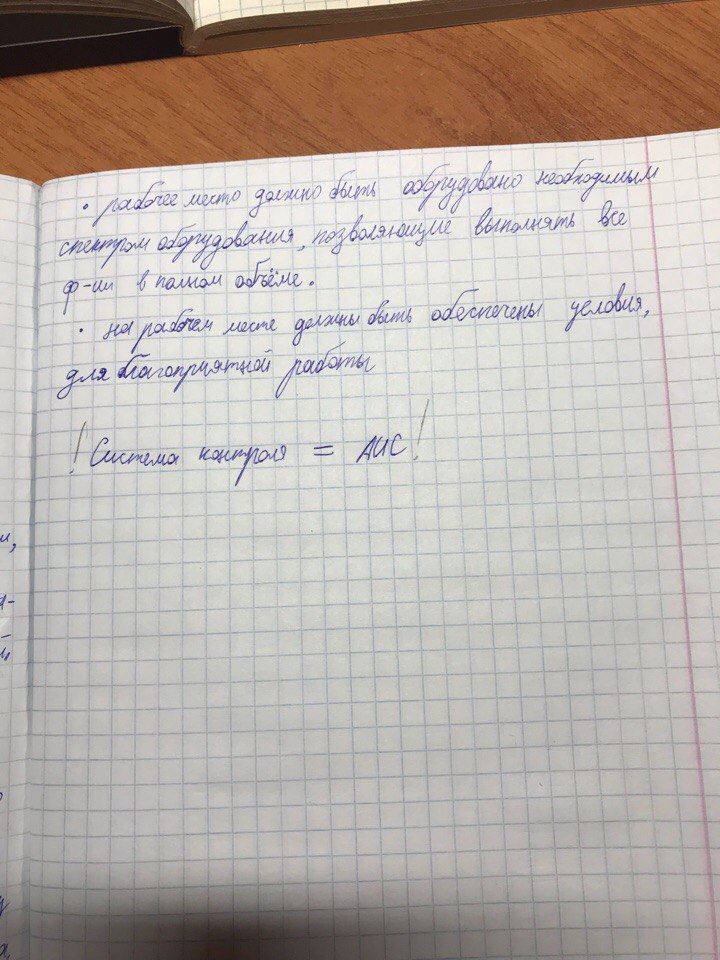 • рабочее место должно быть оборудовано необходимым
спектром оборудования, позволяющие выполнять все
ф-ии в полном объёме.
• на рабочем месте должны быть обеспечены условия,
для благоприятной работы
! Система контроля = АИС !